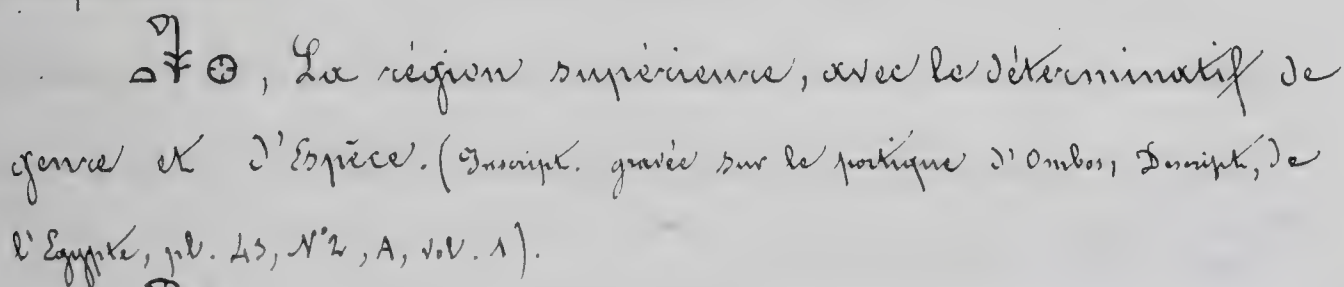 , La région supérieure, avec le déterminatif de
genre et d'Espèce. (Inscript. gravée sur le portique d'Ombos, Descript, de
l'Egypte, pl. 43, N° 2, A, vol. 1).